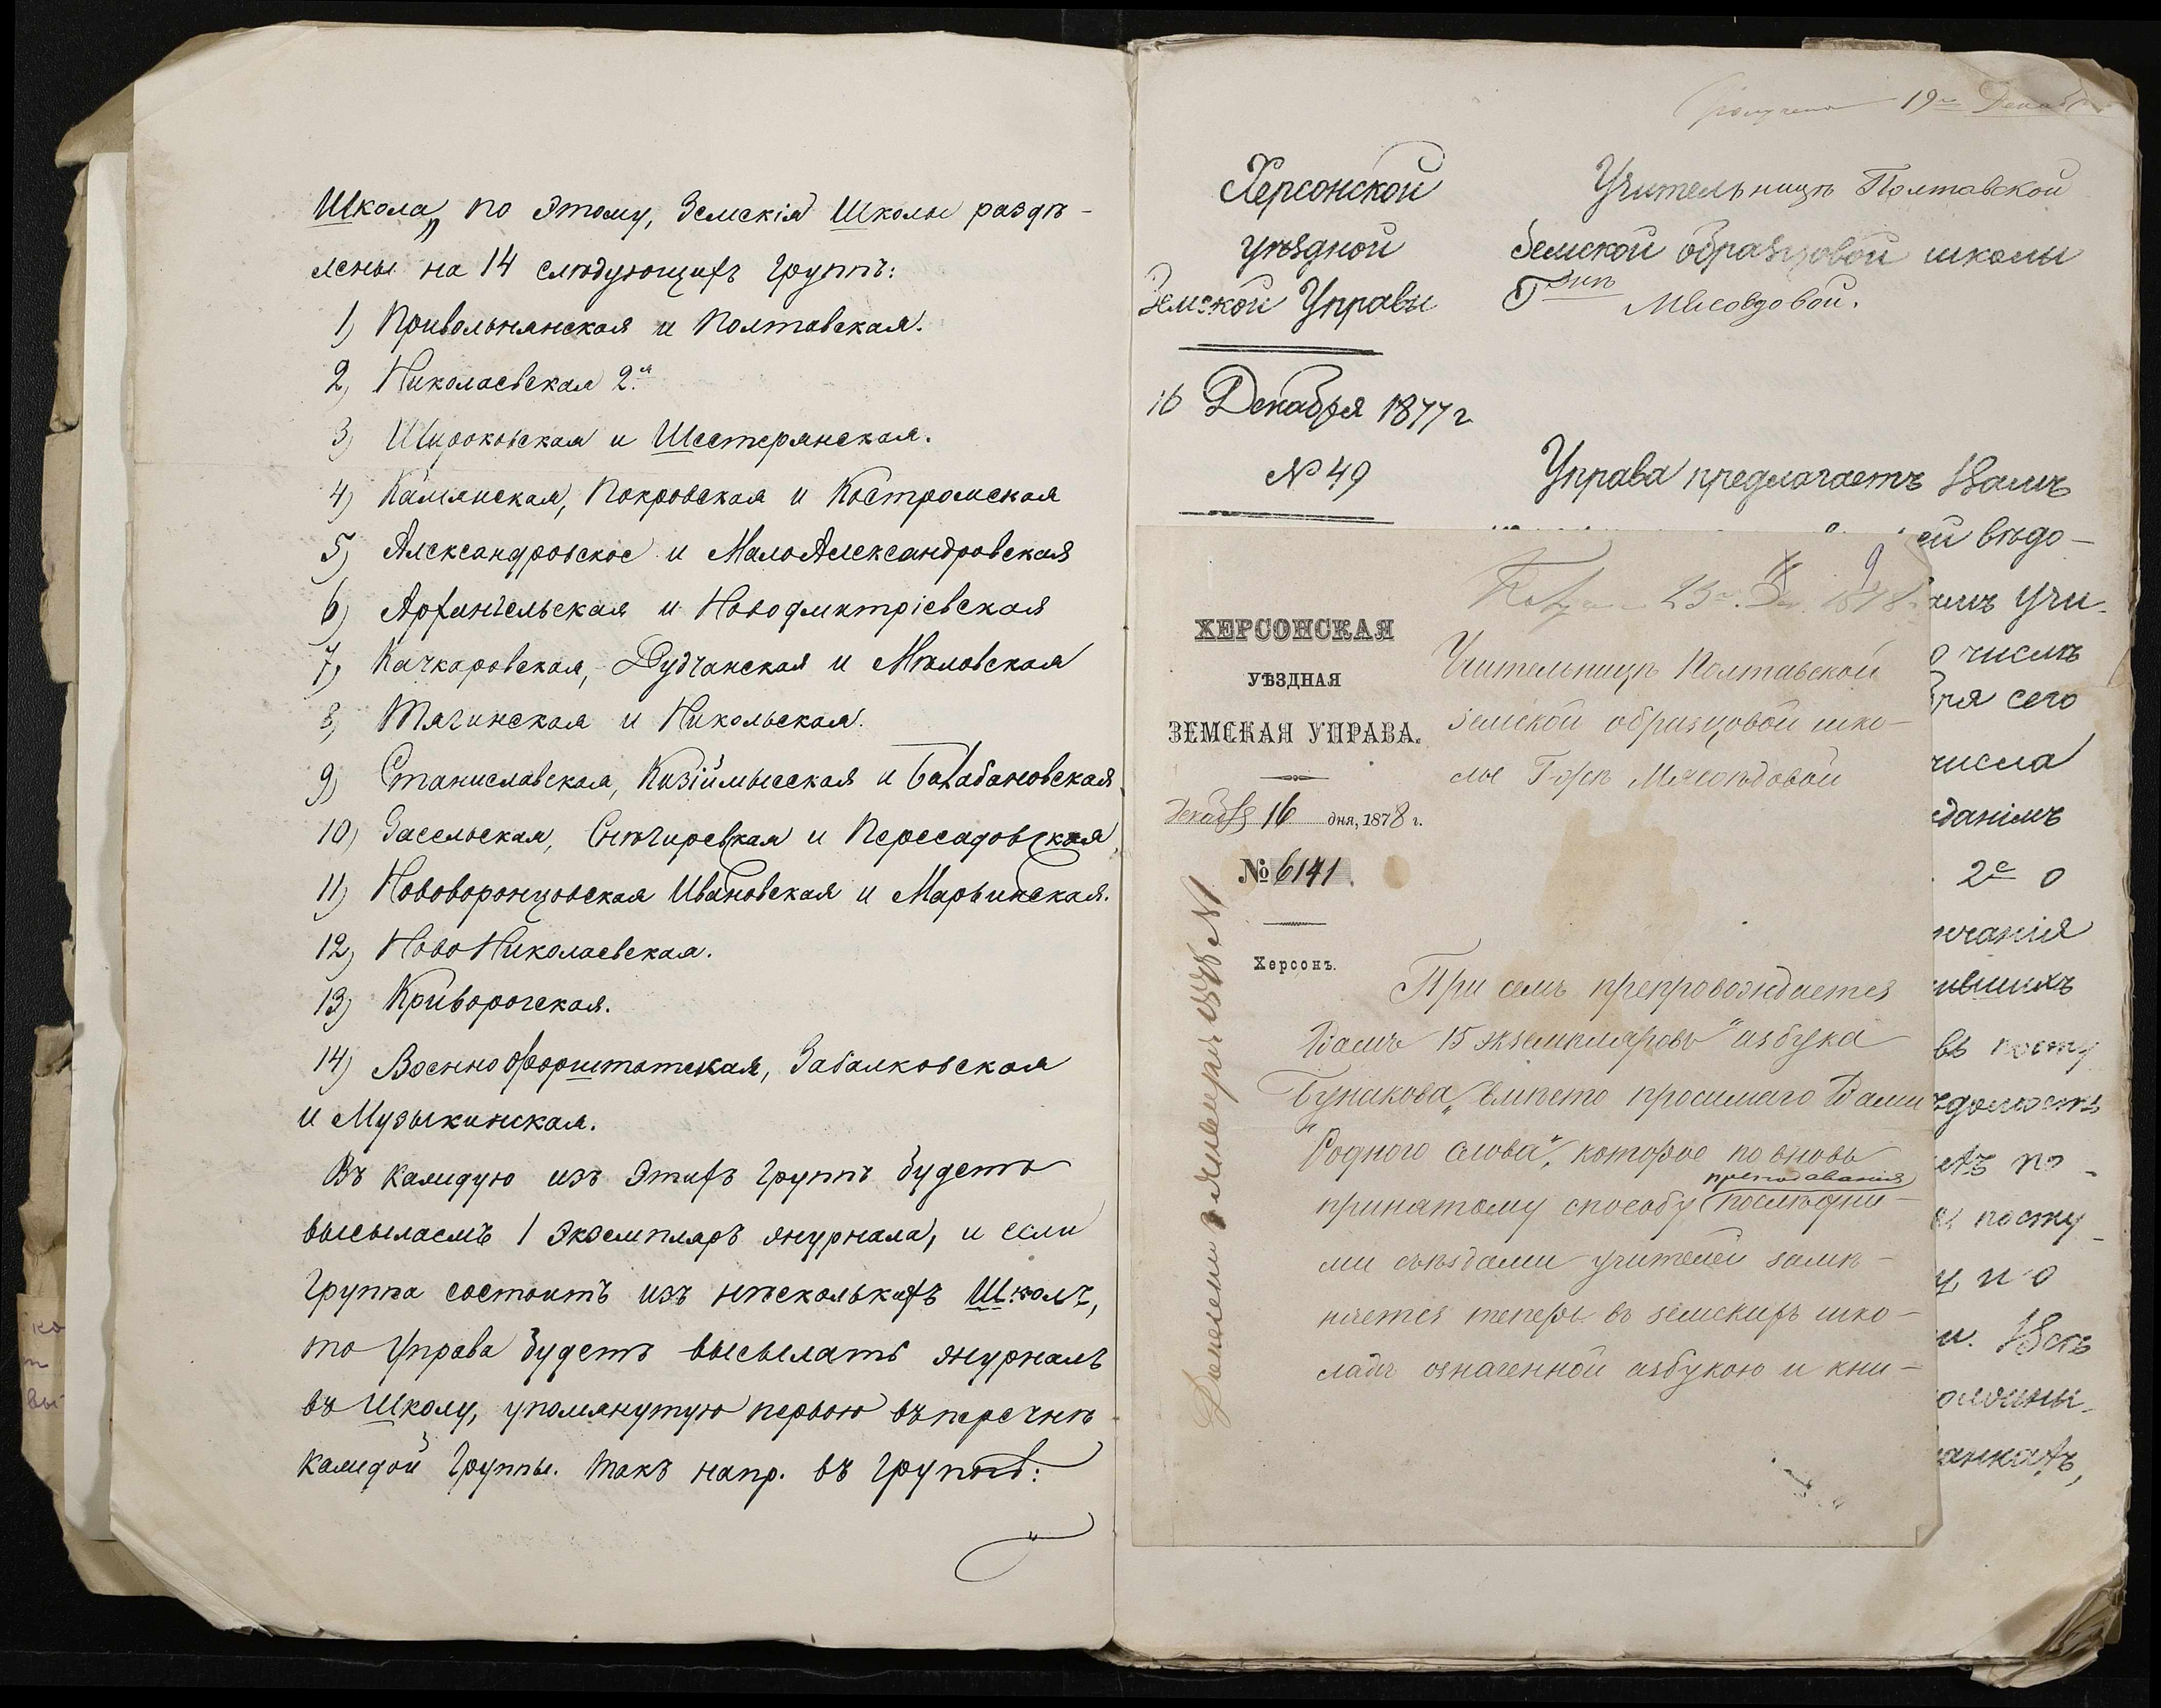 Школа„ по этому, Земскія Школы раздѣ-
лены на 14 слѣдующихъ группъ:
1) Привольнянская и Полтавская.
2) Николаевская 2.я
3) Широковская и Шестерянская.
4) Камянская, Покровская и Костромская
5) Александровское и МалоАлександровская
6) Архангельская и Новодмитріевская
7) Качкаровская, Дудчанская и Мѣловская
8) Тягинская и Никольская.
9) Станиславская, Кизіймысская и Балабановская
10) Засельская, Снѣгиревская и Пересадовская,
11) Нововоронцовская Ивановская и Марьинская.
12) НовоНиколаевская.
13) Криворогская.
14) Военнофорштатская, Забалковская
и Музыкинская.
Въ каждую изъ этихъ группъ будетъ
высылаемъ 1 экземпляръ журнала, и если
группа состоитъ изъ нѣсколькихъ Школъ,
то Управа будетъ высылать журналъ
въ Школу, упомянутую первою въ перечнѣ
каждой группы. Такъ напр. въ группѣ:
Получено 19го Декабря
Херсонской
уѣздной
Земской Управы
16 Декабря 1877 г
№ 49
Учительницѣ Полтавской
Земской образцовой школы
Гжѣ Мясоѣдовой.
Управа предлагаетъ Вамъ
ей вѣдо-
учи-
числѣ
сего
числа
2е о
посту
по-
посту
по
Всѣ
9
23го 1878
ХЕРСОНСКАЯ
УѢЗДНАЯ
ЗЕМСКАЯ УПРАВА.
Декабря 16 дня, 1878 г.
№ 6141.
Херсонъ.
Учительницѣ Полтавской
земской образцовой шко-
лы Г-жѣ Мясоѣдовой
При семъ препровождается
Вамъ 15 экземпляровъ "азбука
Бунакова„ вмѣсто просимаго Вами
"Роднаго слова", которое по вновь
преподаванія
принятому способу послѣдни-
ми съѣздами учителей замѣ-
няется теперь въ земскихъ шко-
лахъ означенной азбукою и кни-